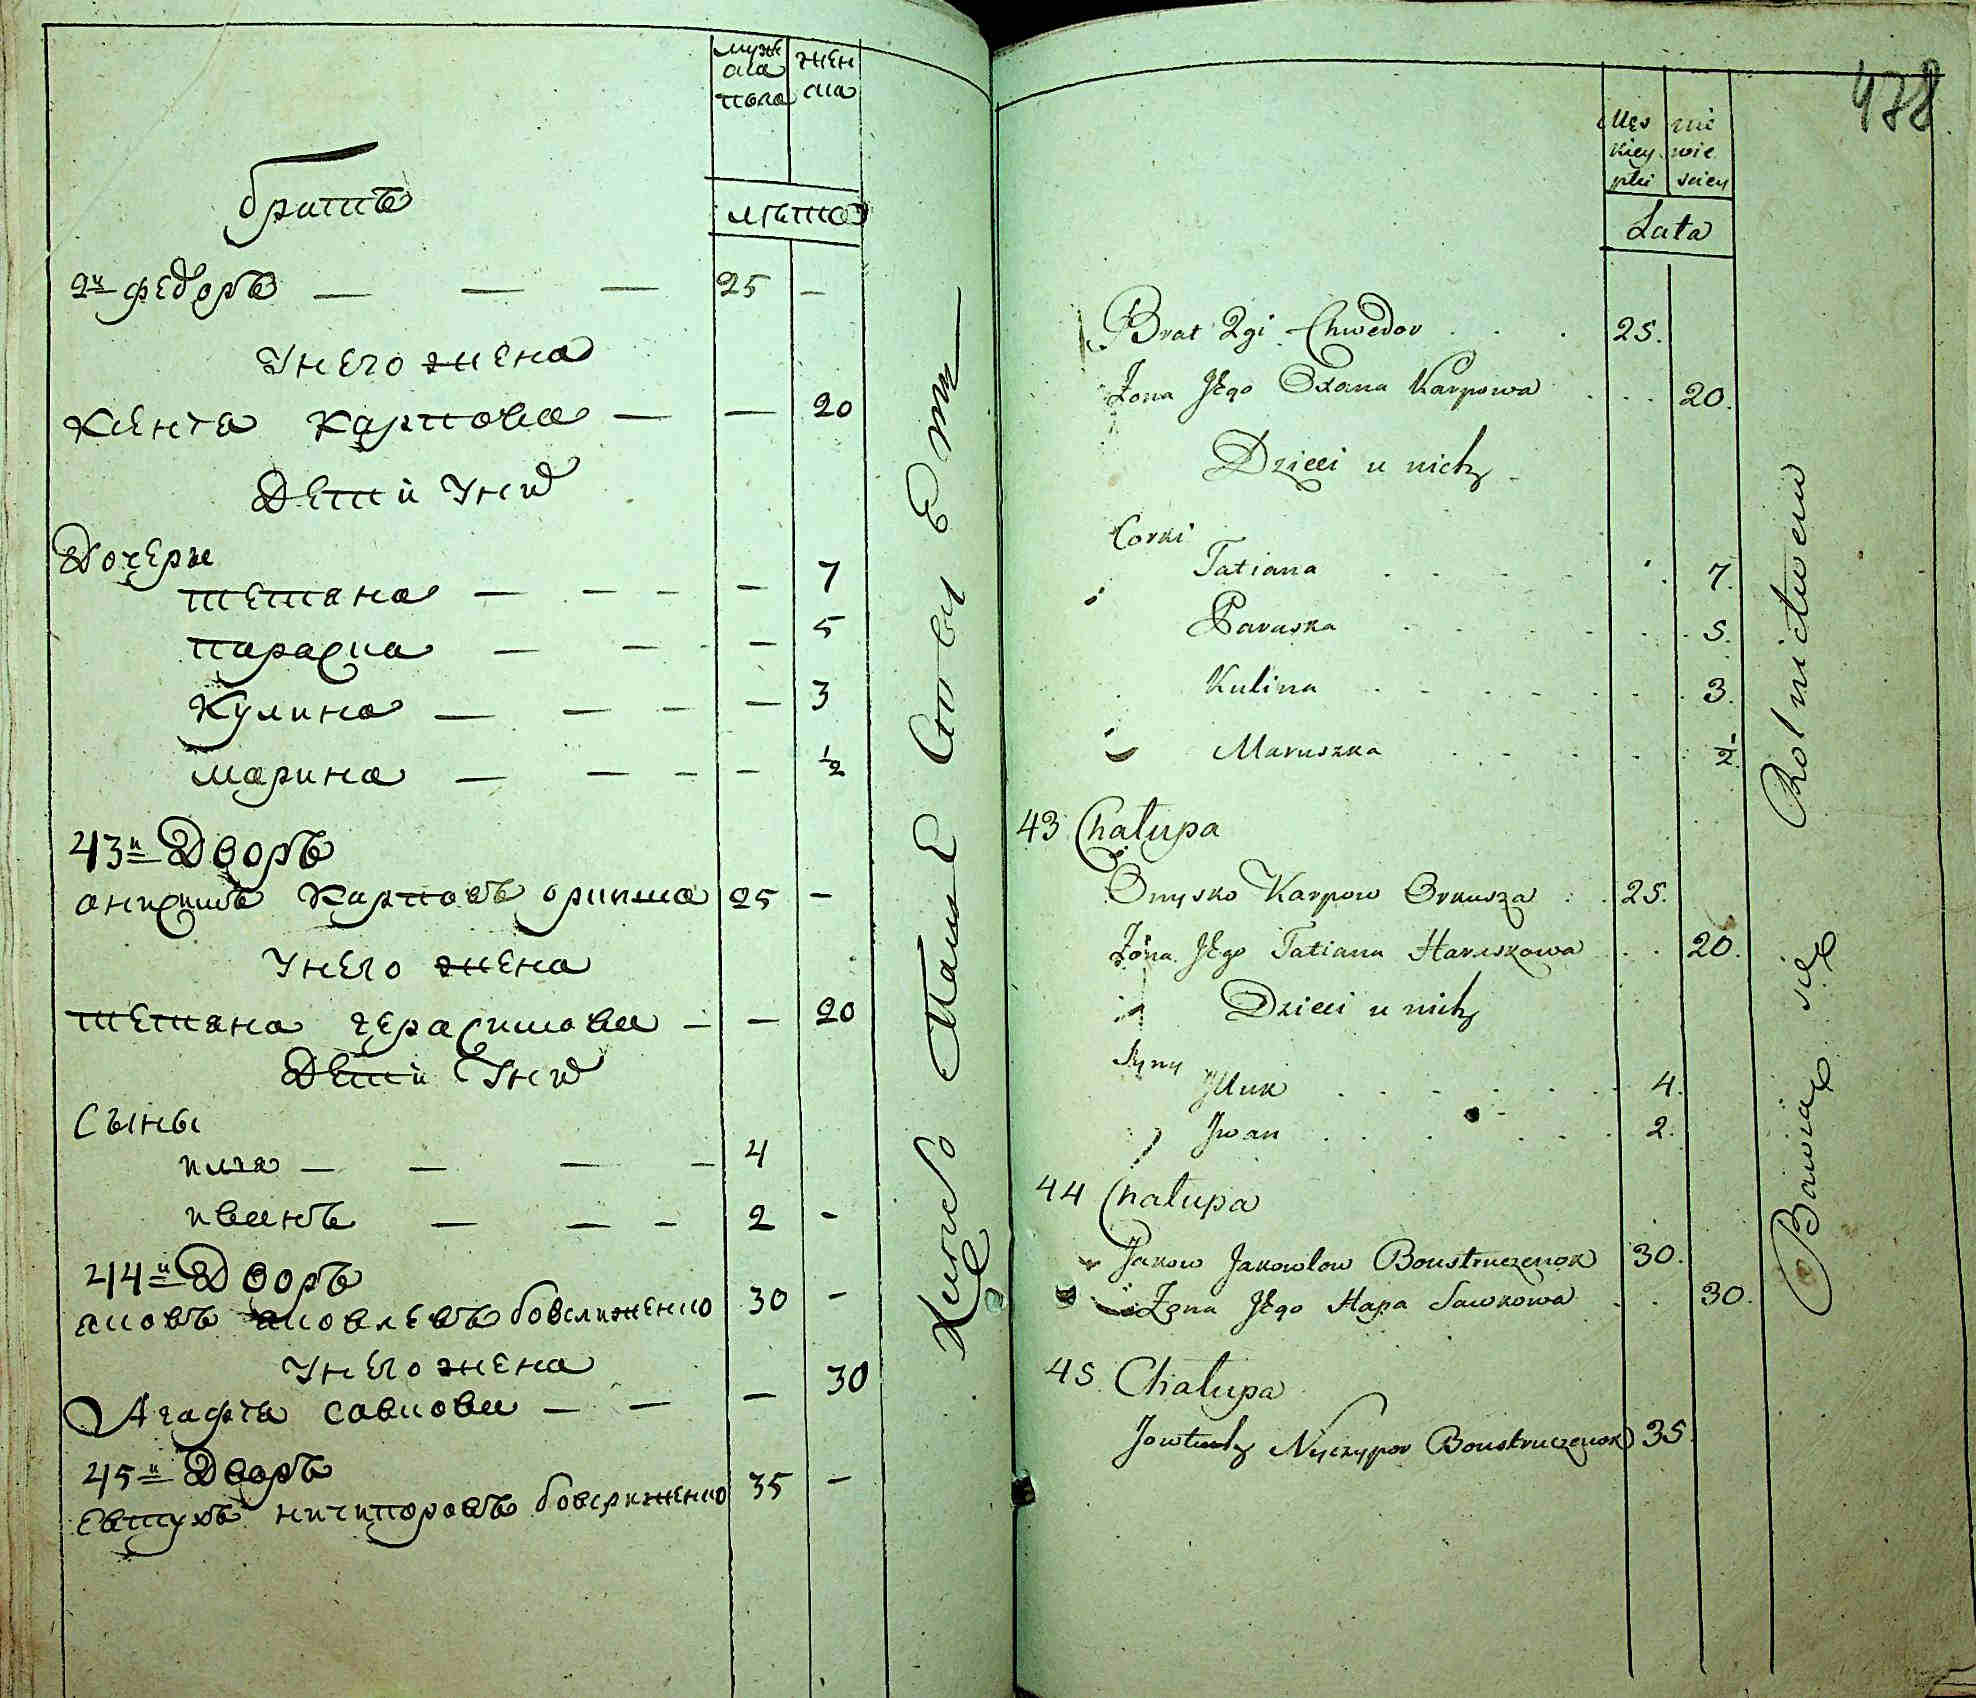 муже
ска
пола
жен
ска
лѣта
братъ
2й федоръ — — — 25 —
Унего жена
Ксеня карпова — — 20
Дети Унихъ
Дочери
тетяна — — — — 7
параска — — — 5
Кулина — — — — 3
марина — — — — ½
43й Дворъ
онисимъ Карповъ оркиша 25 —
Унего жена
тетяна герасимова — — 20
Дети Унихъ
Сыны
илья — — — — 4
иванъ — — — 2 —
44й Дворъ
яковъ яковлевъ 30 —
Унего жена
Агафія савкова — — — 30
45й Дворъ
евтухъ ничипоровъ 35 —
478
Męs
kiey
płci
nie
wie
sciey
Lata
Brat 2gi Chwedor . . . 25.
Żona Jego Oxana Karpowa . . . 20.
Dzieci u nich
Corki
Tatiana . . . . . 7.
Paraska . . . . . 5.
Kulina . . . . . 3.
Maruszka . . . . ½.
43 Chałupa
Onysko Karpow Orkusza . . 25.
Żona Jego Tatiana Haraskowa . . 20.
Dzieci u nich
Syny
Iwan . . . . . 2.
44 Chałupa
Jakow Jakowlow Boustruczenok 30.
Żona Jego Hapa Sawkowa . . 30.
45. Chałupa
Jowtuch Nyczypor Boustruczenok 35.
Bawią się Rolnictwem